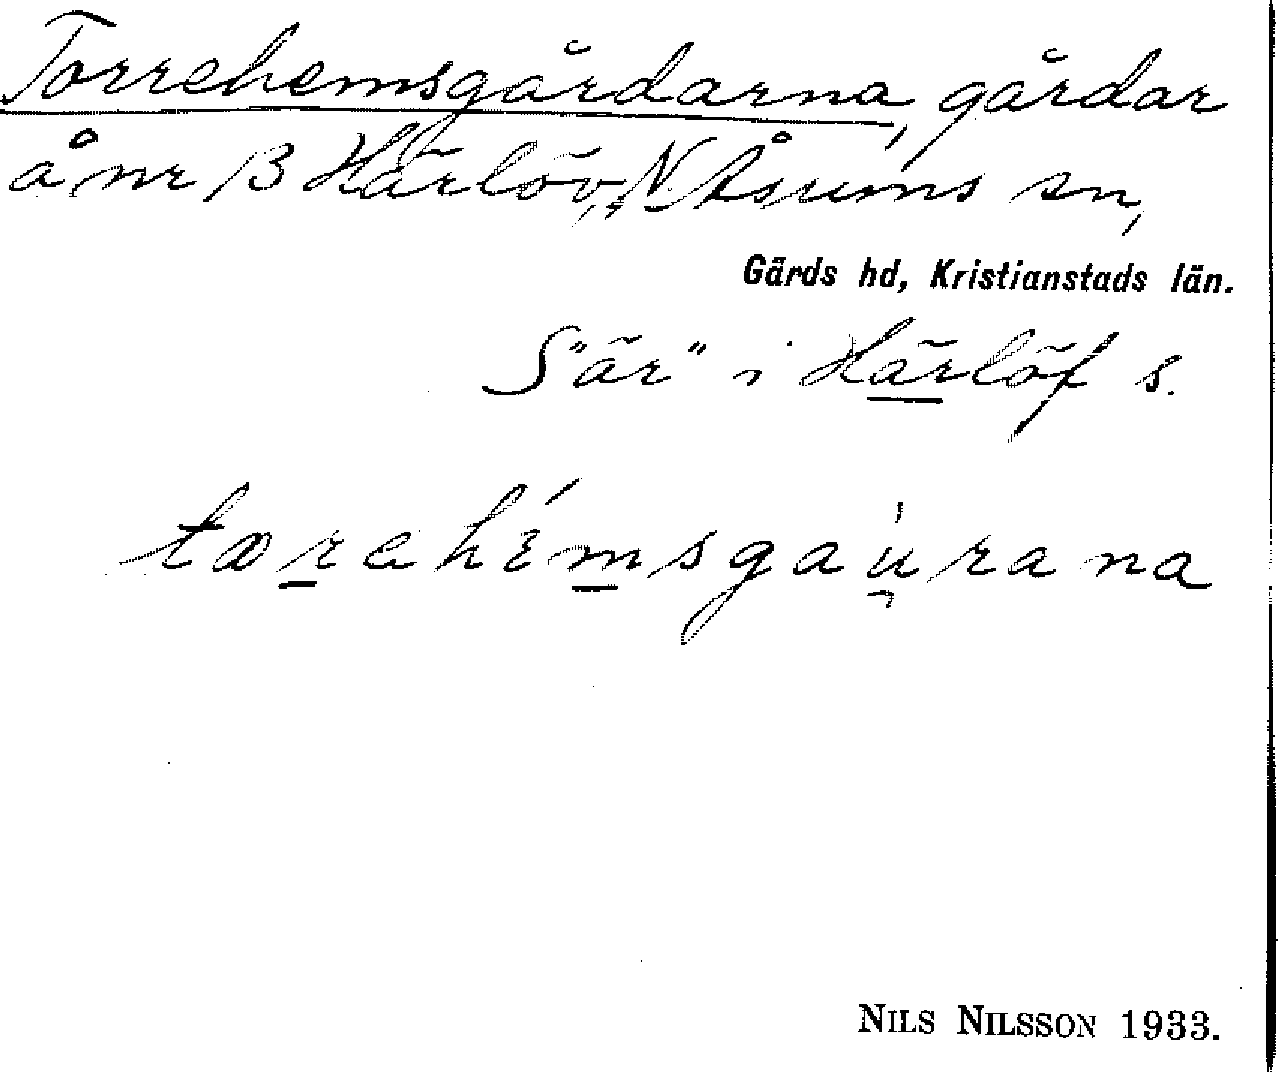 Torrehemsgårdarna, gårdar
å nr 13 Härlöv, N. Åsums sn,
Gärds hd, Kristianstads län.
S "är" i Härlöf s.
torehémsgaurana
NILS NILSSON 1933.